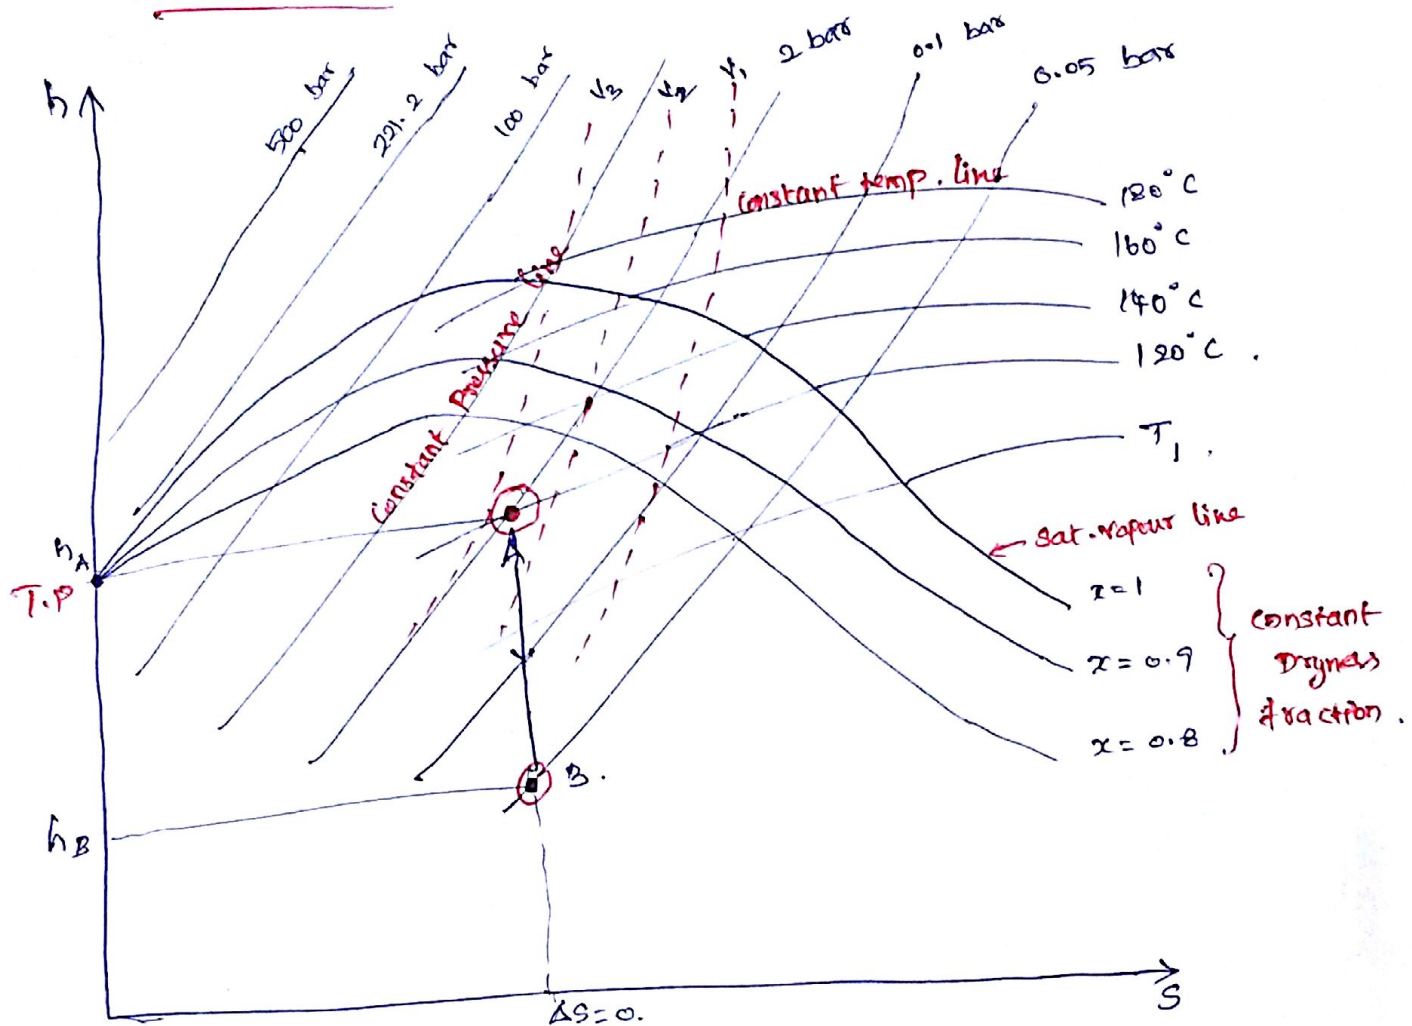 h
500 bar
221.2 bar
100 bar
V3
V2
V1
2 bar
0.1 bar
0.05 bar
Constant temp. line
180°C
160°C
140°C
120°C.
T1.
Constant Pressure line
hA
T.P
A
Sat. vapour line
x=1
x=0.9
x=0.8
Constant
Dryness
fraction.
B.
hB
ΔS=0.
S